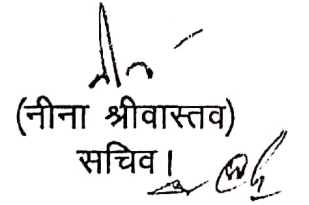 (नीना श्रीवास्तव)
सचिव।